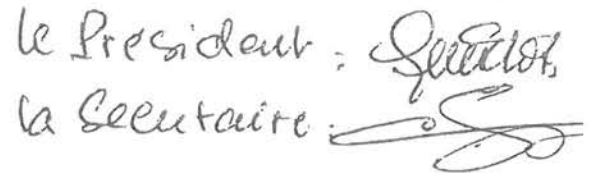 le Président :
la Secrétaire :